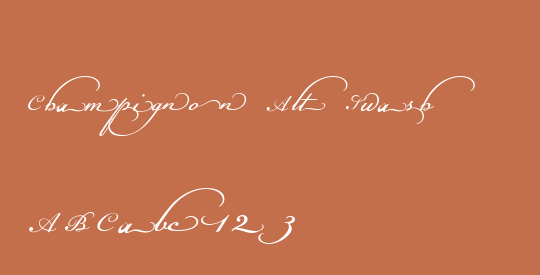 Champignon Alt Swash
ABCabc123